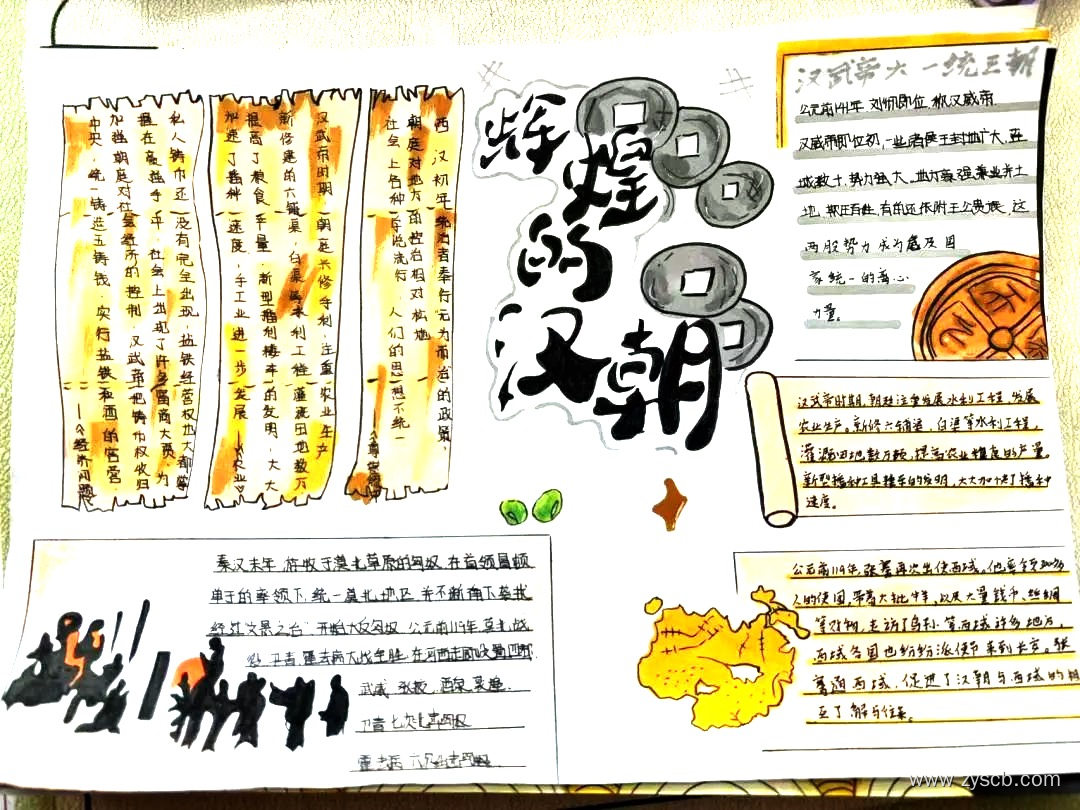 辉煌的汉朝
西汉初年,统治者奉行无为而治的政策,
朝廷对地方的控制相对松弛
社会上各种学说流行,人们的思想不统一
汉武帝时期,朝廷兴修水利,注重农业生产
新修建的六辅渠,白渠等水利工程灌溉田地数万
提高了粮食产量,新型播种耧车的发明,大大
加速了播种速度,手工业进一步发展 —《农业》
私人铸币还没有完全出现,盐铁经营权也大都掌
握在豪强手中,社会上出现了许多富商大贾,为
加强朝廷对社会经济的控制,汉武帝把铸币权收归
中央,统一铸造五铢钱,实行盐铁和酒的官营
—《经济问题》
汉武帝大一统王朝
公元前141年 刘彻即位,称汉武帝
汉武帝即位初,一些诸侯王封地广大,连
城数十,势力强大。地方豪强兼业并土
地,欺压百姓,有的还依附王公贵族,这
两股势力成为危及国
家统一的离心
力量。
汉武帝时期,朝廷注重发展水利工程,发展
农业生产。新修六辅渠,白渠等水利工程,
灌溉田地数万顷,提高农业粮食的产量,
新型播种工具耧车的发明,大大加快了播种
速度。
公元前119年,张骞再次出使西域。他率领300多
人的使团,带着大批牛羊,以及大量钱币、丝绸
等财物,走访了乌孙等西域许多地方,
西域各国也纷纷派使节来到长安。张
骞通西域,促进了汉朝与西域的相
互了解与往来。
秦汉末年,游牧于漠北草原的匈奴,在首领冒顿
单于的率领下,统一漠北地区,并不断南下袭扰
经过文景之治 开始大反匈奴 公元前119年漠北战
役,卫青,霍去病大战争胜,在河西走廊设置四郡
武威 张掖,酒泉 敦煌
卫青七次击匈奴
霍去病 六次出击匈奴
www.zyscb.com